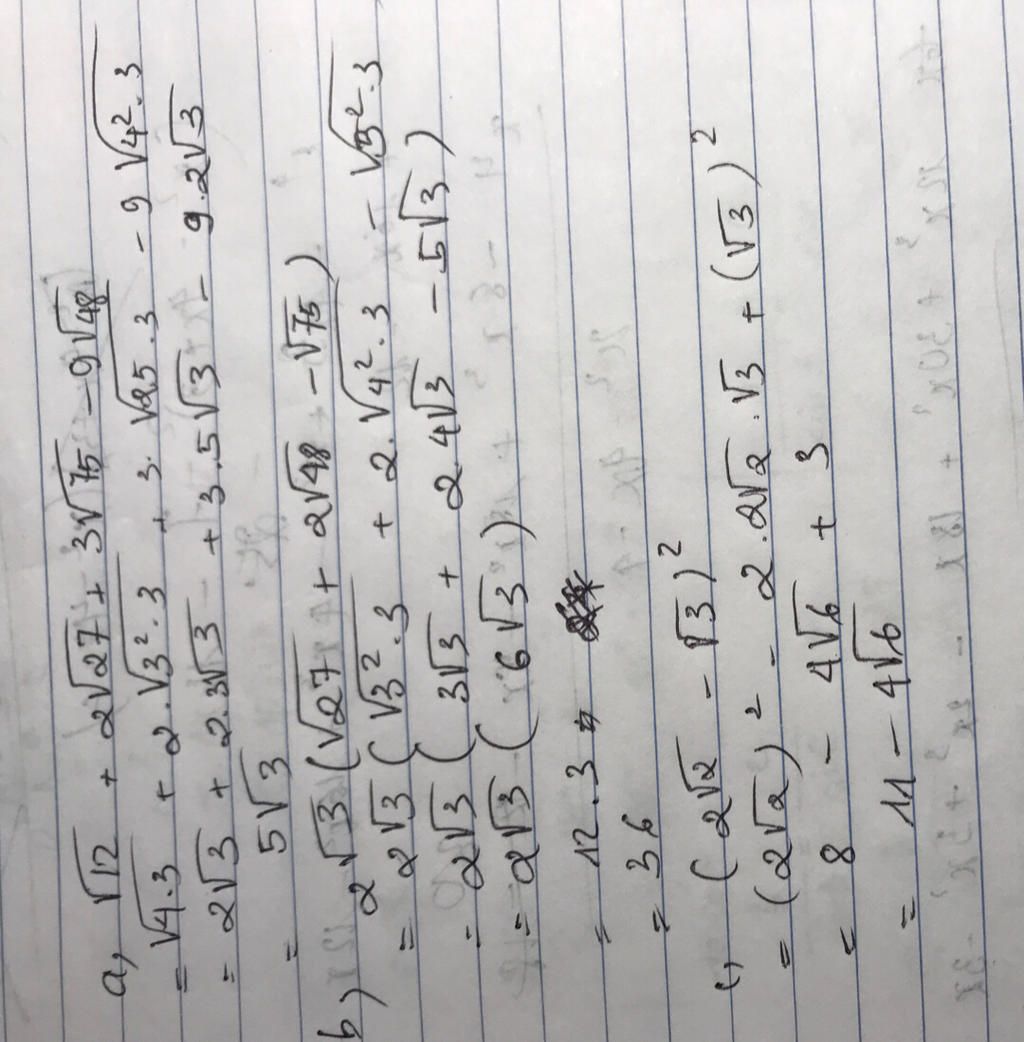 a, √12 + 2√27 + 3√75 - 9√48
= √4.3 + 2.√3².3 + 3.√25.3 - 9√4².3
= 2√3 + 2.3√3 + 3.5√3 - 9.2√3
= 5√3
b) 2√3 (√27 + 2√48 - √75)
= 2√3 (√3².3 + 2.√4².3 - √5².3
= 2√3 ( 3√3 + 2.4√3 - 5√3 )
= 2√3 ( 6√3 )
= 12.3
= 36
c, ( 2√2 - √3 )²
= (2√2)² - 2.2√2.√3 + (√3)²
= 8 - 4√6 + 3
= 11 - 4√6